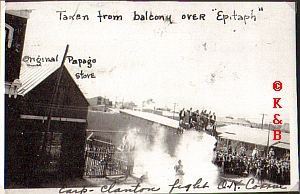 Taken from balcony over "Epitaph"
Original Papago
store
©
K
&
B
Earp-Clanton fight O.K. Corral